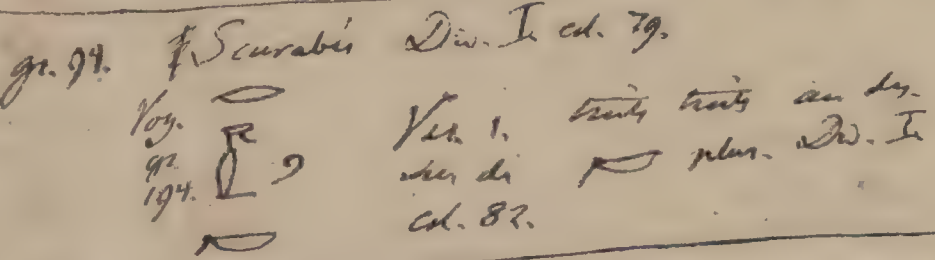 gr. 94. Scarabée Div. I. col. 79.
Voy. gr. 194.
Var. 1. trois traits au des-
sus de plur. Div. I.
col. 82.